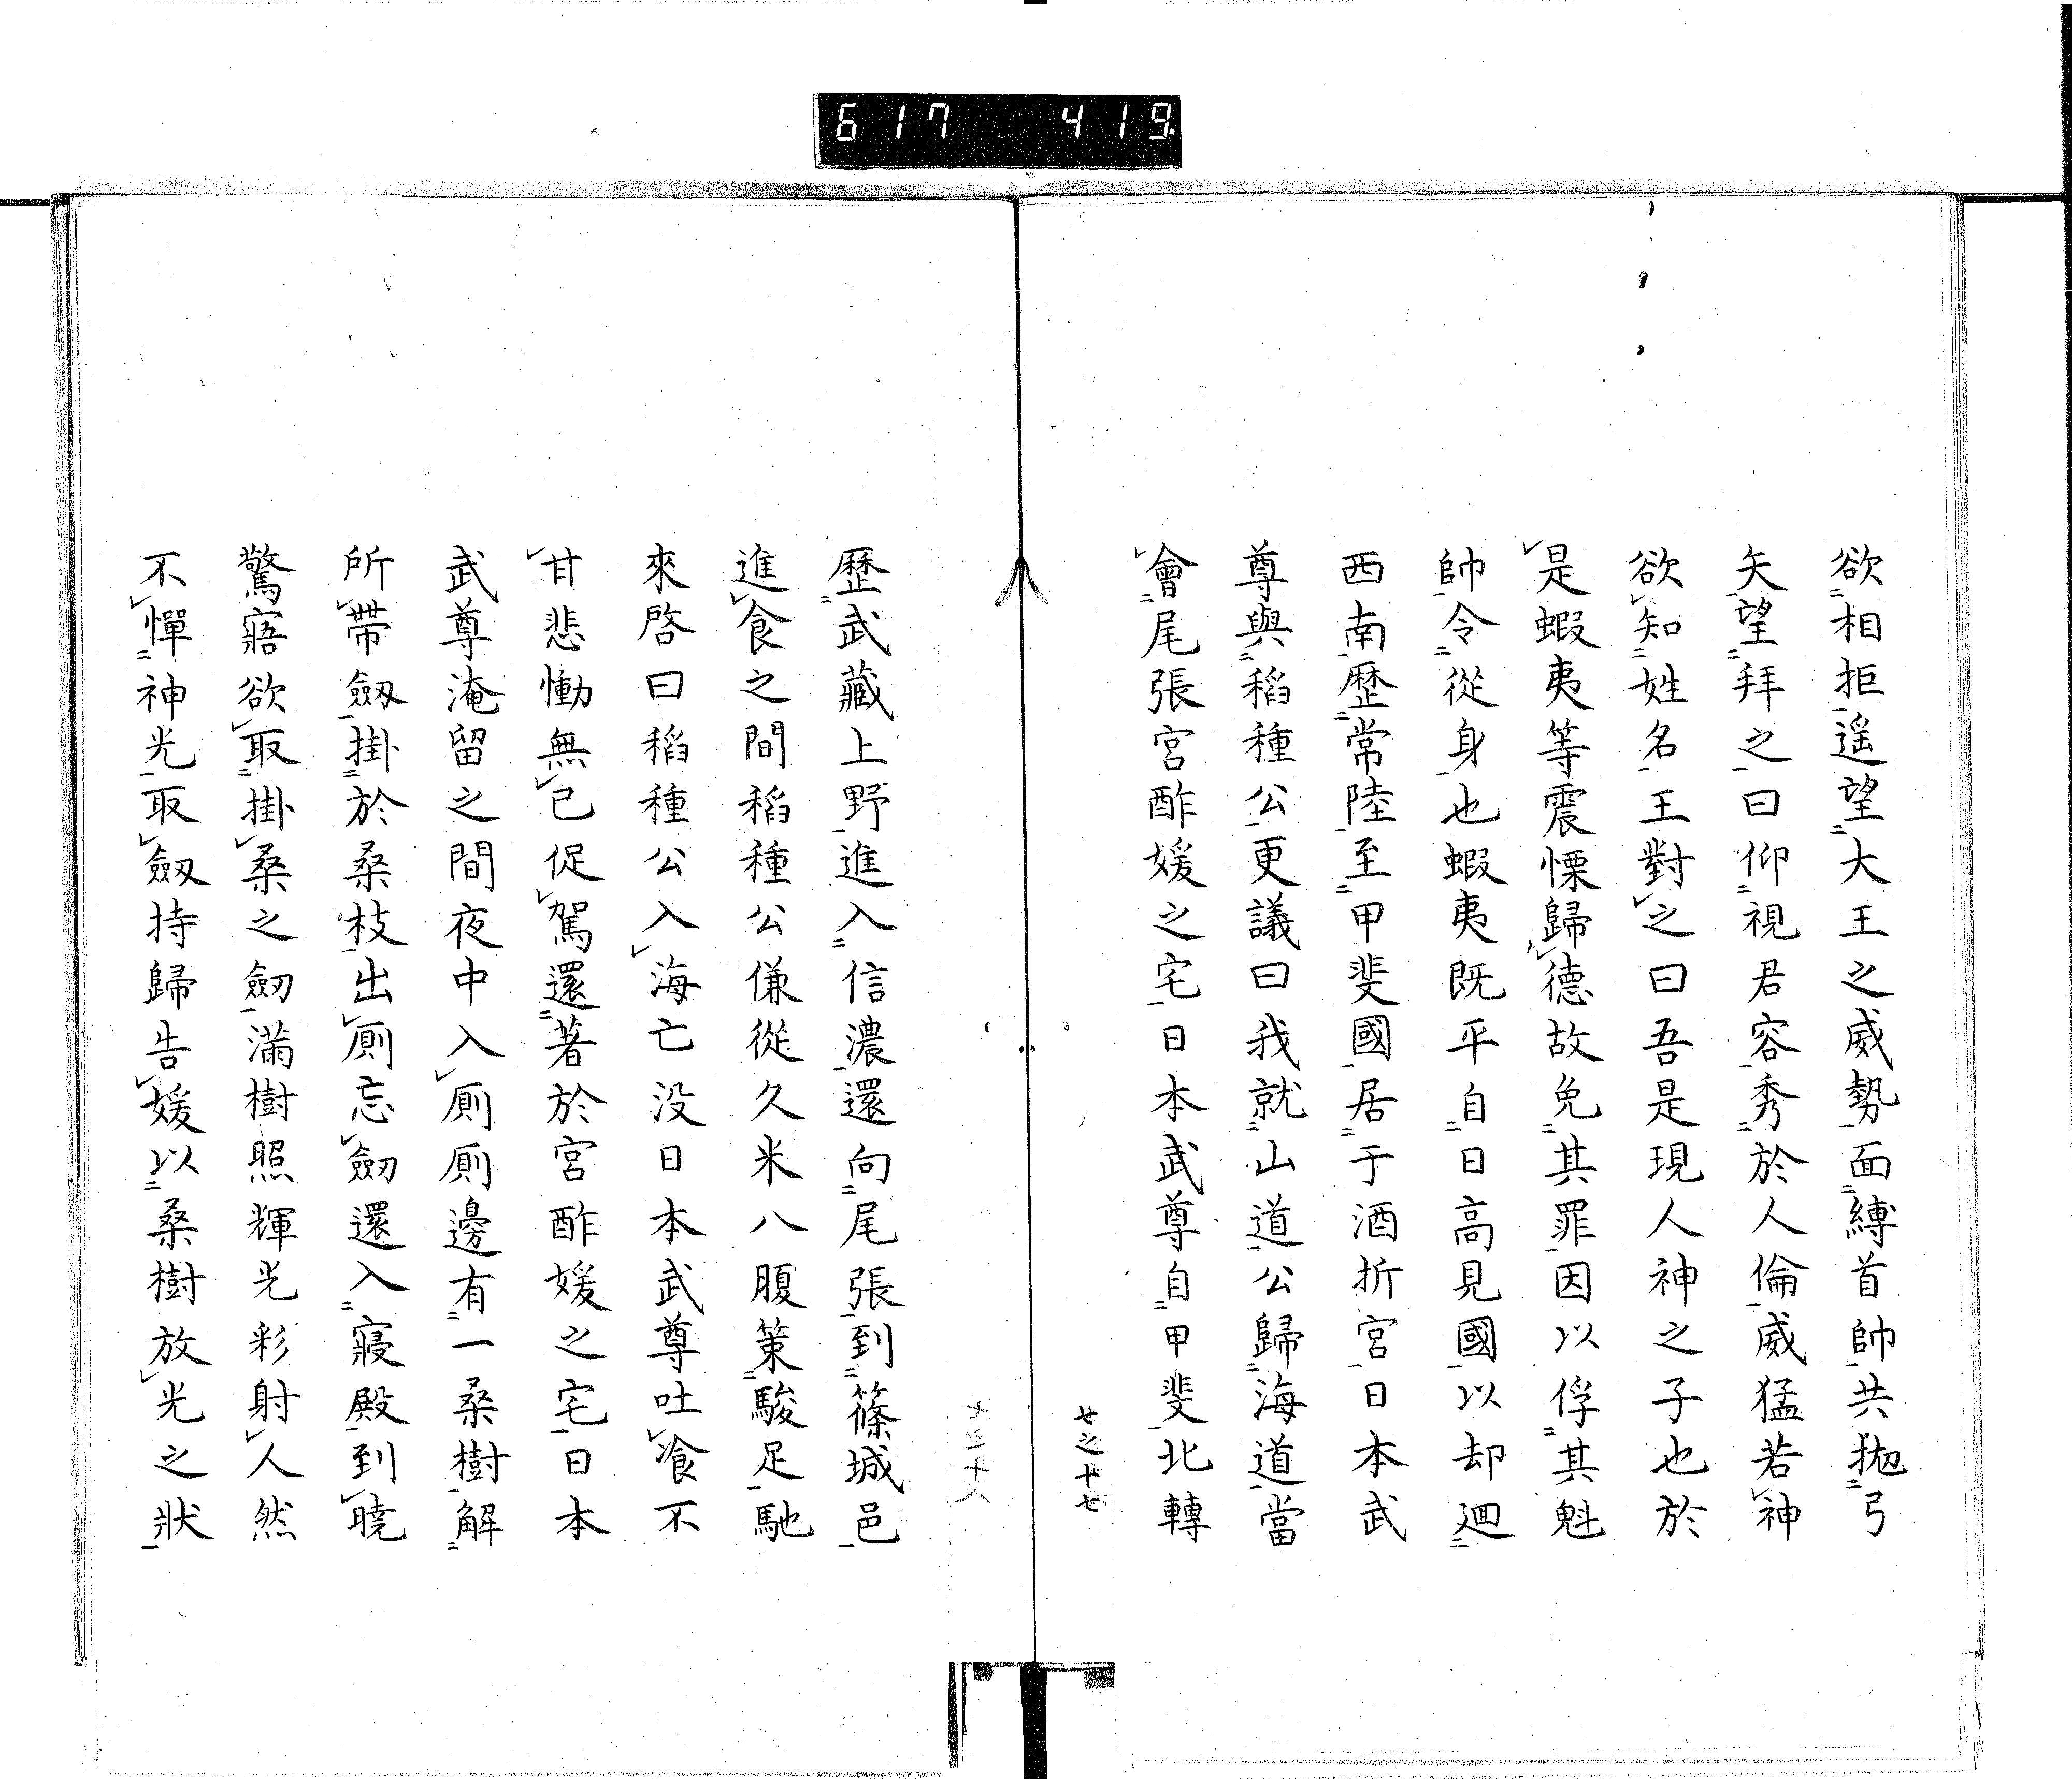 617 419
欲相拒遥望大王之威勢面縛首帥共抛弓
矢望拜之曰仰視君容秀於人倫威猛若神
欲知姓名王對之曰吾是現人神之子也於
是蝦夷等震慄歸德故免其罪因以俘其魁
帥令從身也蝦夷既平自日高見國以却廻
西南歷常陸至甲斐國居于酒折宮日本武
尊與稻種公更議曰我就山道公歸海道當
會尾張宮酢媛之宅日本武尊自甲斐北轉
七之十七
七之十八
歷武藏上野進入信濃還向尾張到篠城邑
進食之間稻種公傔從久米八腹策駿足馳
來啓曰稻種公入海亡没日本武尊吐飡不
甘悲慟無已促駕還著於宮酢媛之宅日本
武尊淹留之間夜中入厠厠邊有一桑樹解
所帶劔掛於桑枝出厠忘劔還入寢殿到曉
驚寤欲取掛桑之劔滿樹照輝光彩射人然
不憚神光取劔持歸告媛以桑樹放光之狀